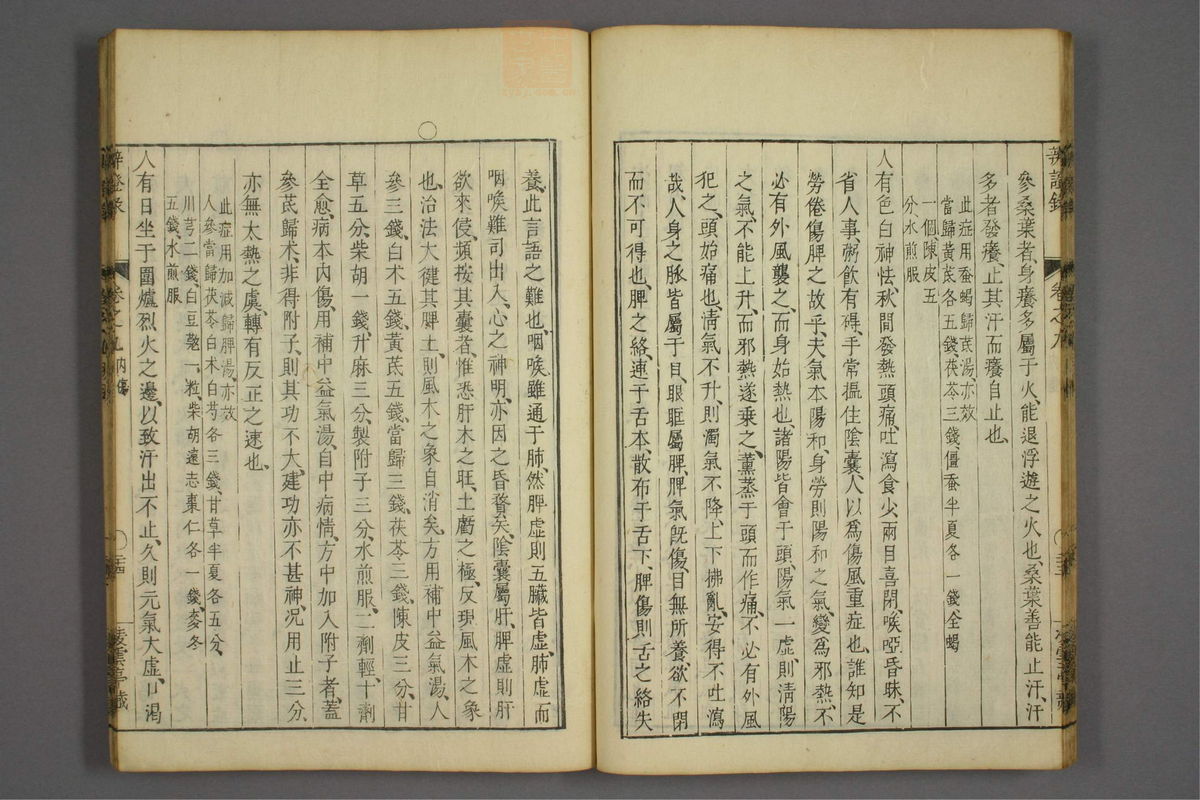 參桑葉者身癢多屬于火能退浮遊之火也桑葉善能止汗汗
多者發癢止其汗而癢自止也
此症用蚕蝎歸芪湯亦效
當歸黃芪各五錢茯苓三錢僵蚕半夏各一錢全蝎
一個陳皮五
分水煎服
人有色白神怯秋間發熱頭痛吐瀉食少兩目喜閉喉啞昏昧不
省人事粥飲有碍手常揾住陰囊人以爲傷風重症也誰知是
勞倦傷脾之故乎夫氣本陽和身勞則陽和之氣變爲邪熱不
必有外風襲之而身始熱也諸陽皆會于頭陽氣一虛則淸陽
之氣不能上升而邪熱遂乘之薰蒸于頭而作痛不必有外風
犯之頭始痛也淸氣不升則濁氣不降上下拂亂安得不吐瀉
哉人身之脉皆屬于目眼眶屬脾脾氣旣傷目無所養欲不閉
而不可得也脾之絡連于舌本散布于舌下脾傷則舌之絡失
養此言語之難也咽喉雖通于肺然脾虛則五臟皆虛肺虛而
咽喉難司出入心之神明亦因之昏瞀矣陰囊屬肝脾虛則肝
欲來侵頻按其囊者惟恐肝木之旺土虧之極反現風木之象
也治法大健其脾土則風木之象自消矣方用補中益氣湯人
參三錢白术五錢黃芪五錢當歸三錢茯苓三錢陳皮三分甘
草五分柴胡一錢升麻三分製附子三分水煎服二劑輕十劑
全愈病本內傷用補中益氣湯自中病情方中加入附子者蓋
參芪歸术非得附子則其功不大建功亦不甚神况用止三分
亦無太熱之虞轉有反正之速也
此症用加減歸脾湯亦效
人參當歸茯苓白术白芍各三錢甘草半夏各五分
川芎二錢白豆蔻一粒柴胡遠志棗仁各一錢麥冬
五錢水煎服
人有日坐于圍爐烈火之邊以致汗出不止久則元氣大虛口渴
卷之九內傷